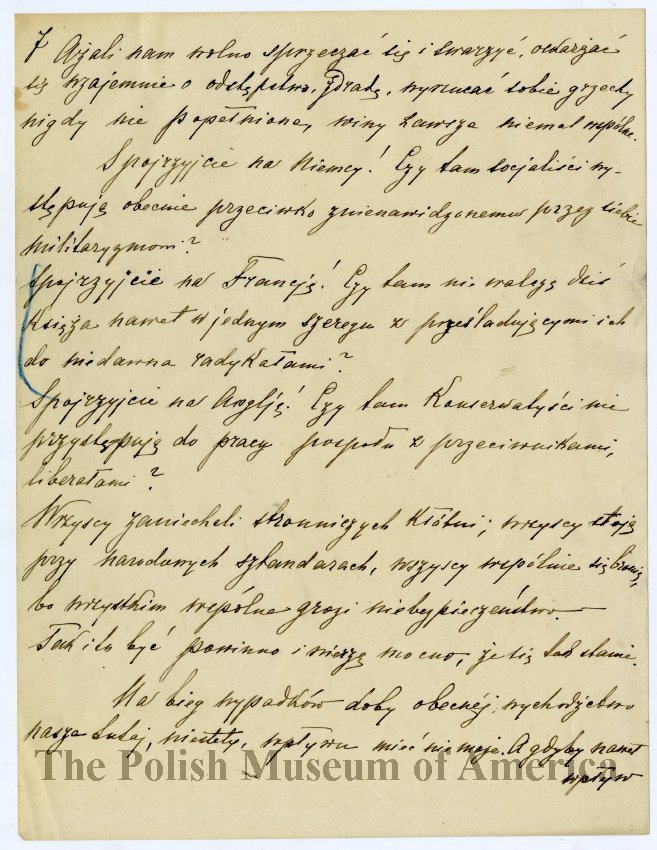 7 Azali nam wolno sprzeczać się i swarzyć, oskarżać
się wzajemnie o odstępstwo, zdradę, wyrzucać sobie grzechy
nigdy nie popełnione, winy zawsze niemal wspólne.
Spojrzyjcie na Niemcy! Czy tam socjaliści wy-
stępują obecnie przeciwko znienawidzonemu przez siebie
militaryzmowi?
Spojrzyjcie na Francję! Czy tam nie walczą dziś
Księża nawet w jednym szeregu z prześladującymi ich
do niedawna radykałami?
Spojrzyjcie na Anglję! Czy tam Konserwatyści nie
przystępują do pracy pospołu z przeciwnikami,
liberałami?
Wszyscy zaniechali stronniczych Kłótni; wszyscy stoją
przy narodowych sztandarach, wszyscy wspólnie się bronią,
bo wszystkim wspólne grozi niebezpieczeństwo.
Tak i tu być powinno i wierzę mocno, że się tak stanie.
Na bieg wypadków doby obecnéj wychodźctwo
nasze tutaj, niestety, wpływu mieć nie może. A gdyby nawet
wpływ
The Polish Museum of America